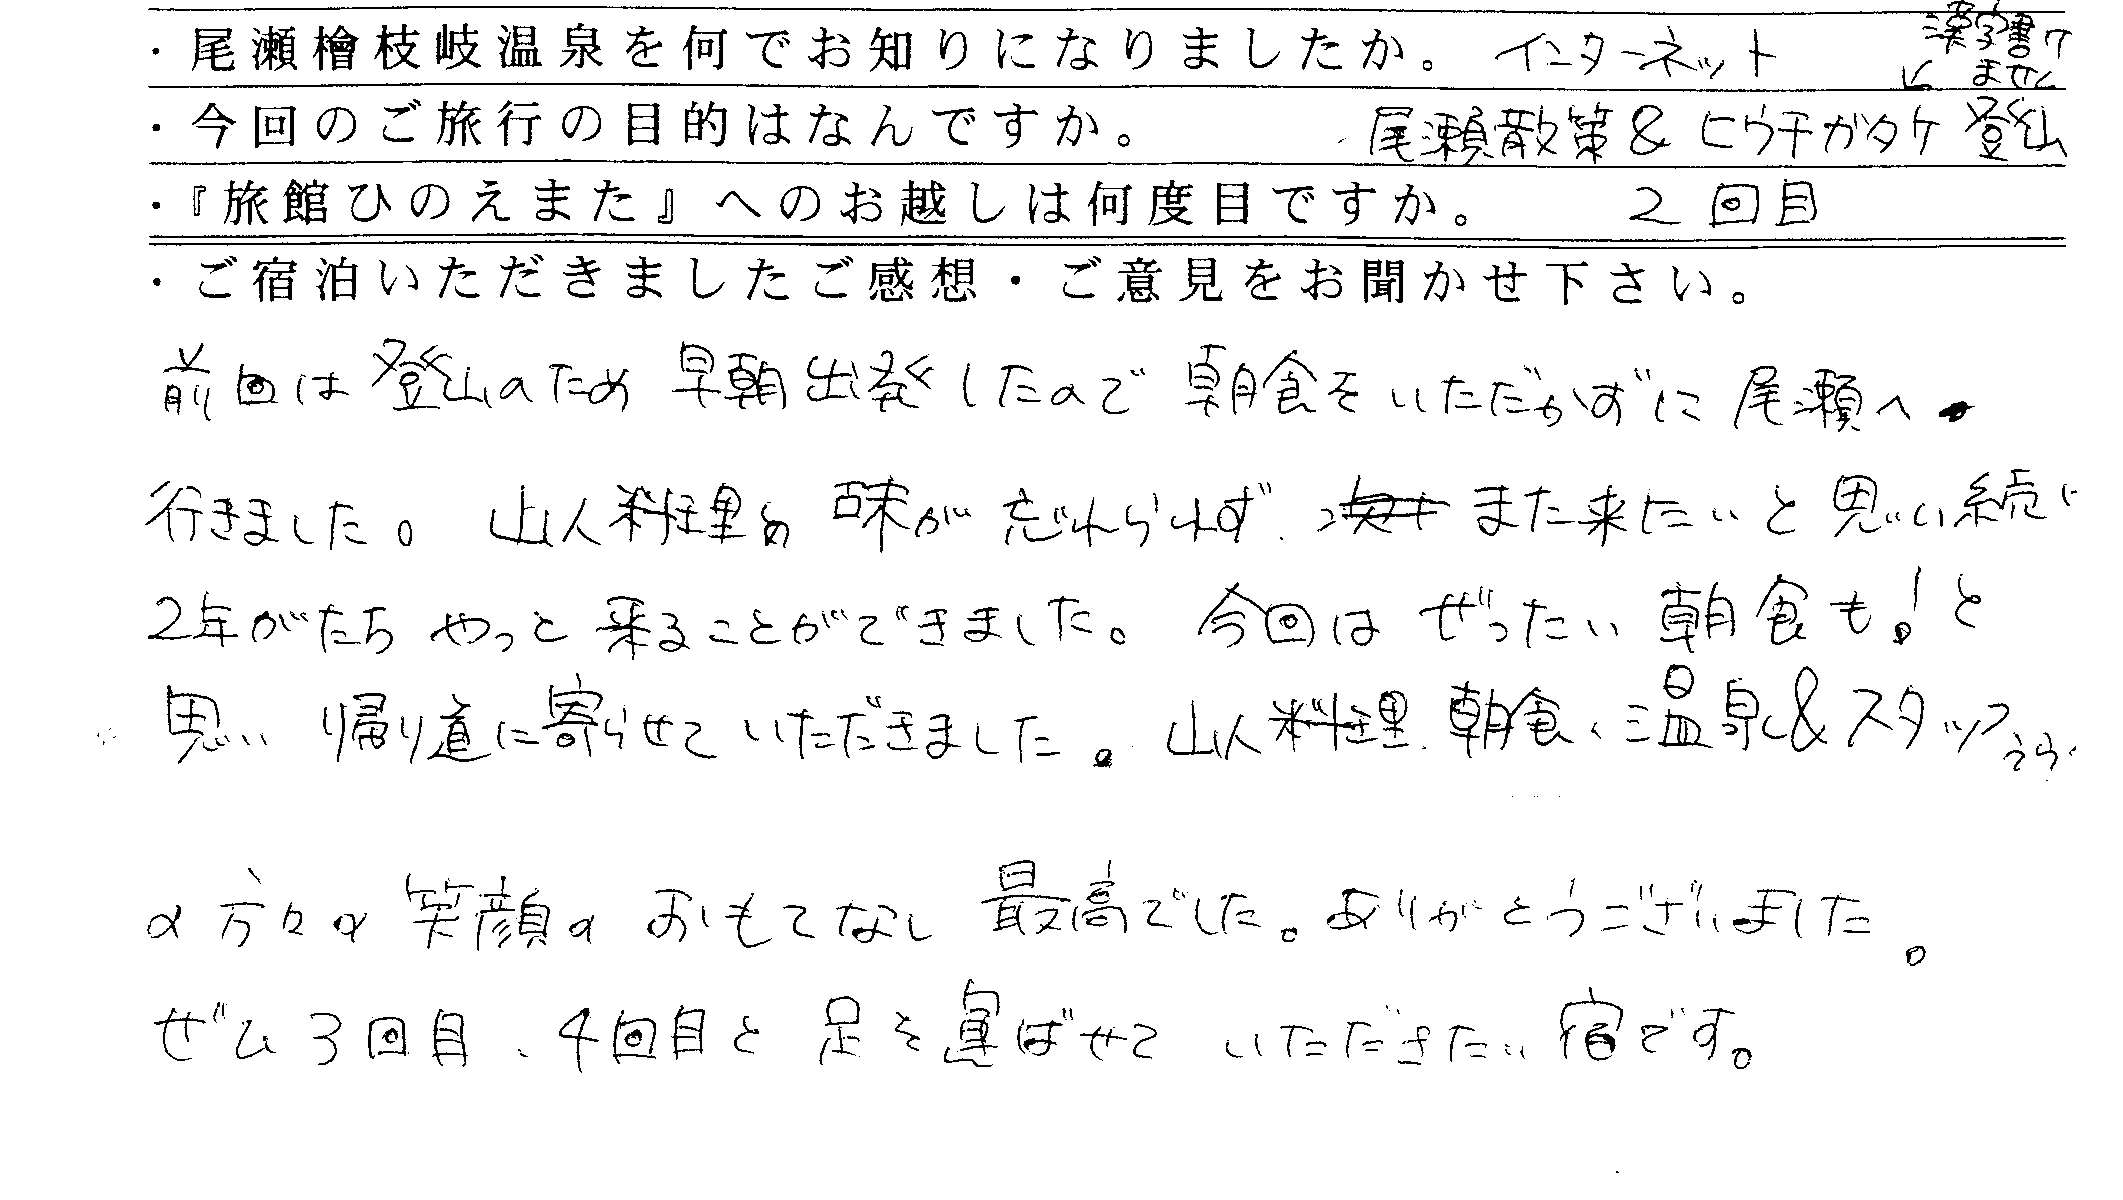 ・尾瀬檜枝岐温泉を何でお知りになりましたか。 インターネット
漢字書け
ません
・今回のご旅行の目的はなんですか。 尾瀬散策&ヒウチガタケ登山
・『旅館ひのえまた』へのお越しは何度目ですか。 2回目
・ご宿泊いただきましたご感想・ご意見をお聞かせ下さい。
前回は登山のため早朝出発したので朝食をいただかずに尾瀬へ
行きました。山人料理の味が忘れられず、また来たいと思い続け
2年がたちやっと来ることができました。今回はぜったい朝食も!と
思い帰り道に寄らせていただきました。山人料理、朝食、温泉&スタッフ
の方々の笑顔のおもてなし最高でした。ありがとうございました。
ぜひ3回目、4回目と足を運ばせていただきたい宿です。